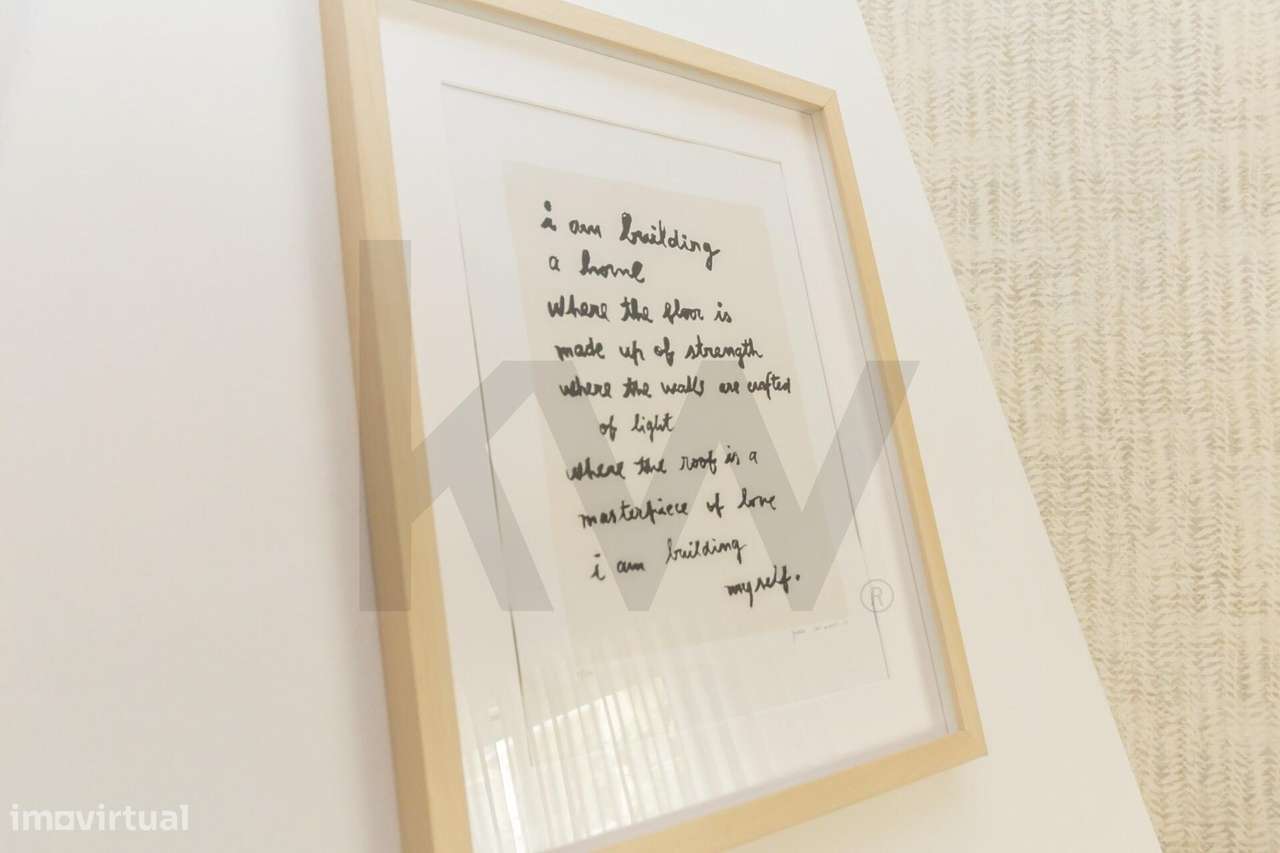 i am building
a home
where the floor is
made up of strength
where the walls are crafted
of light
where the roof is a
masterpiece of love
i am building
myself.
KW
®
imovirtual